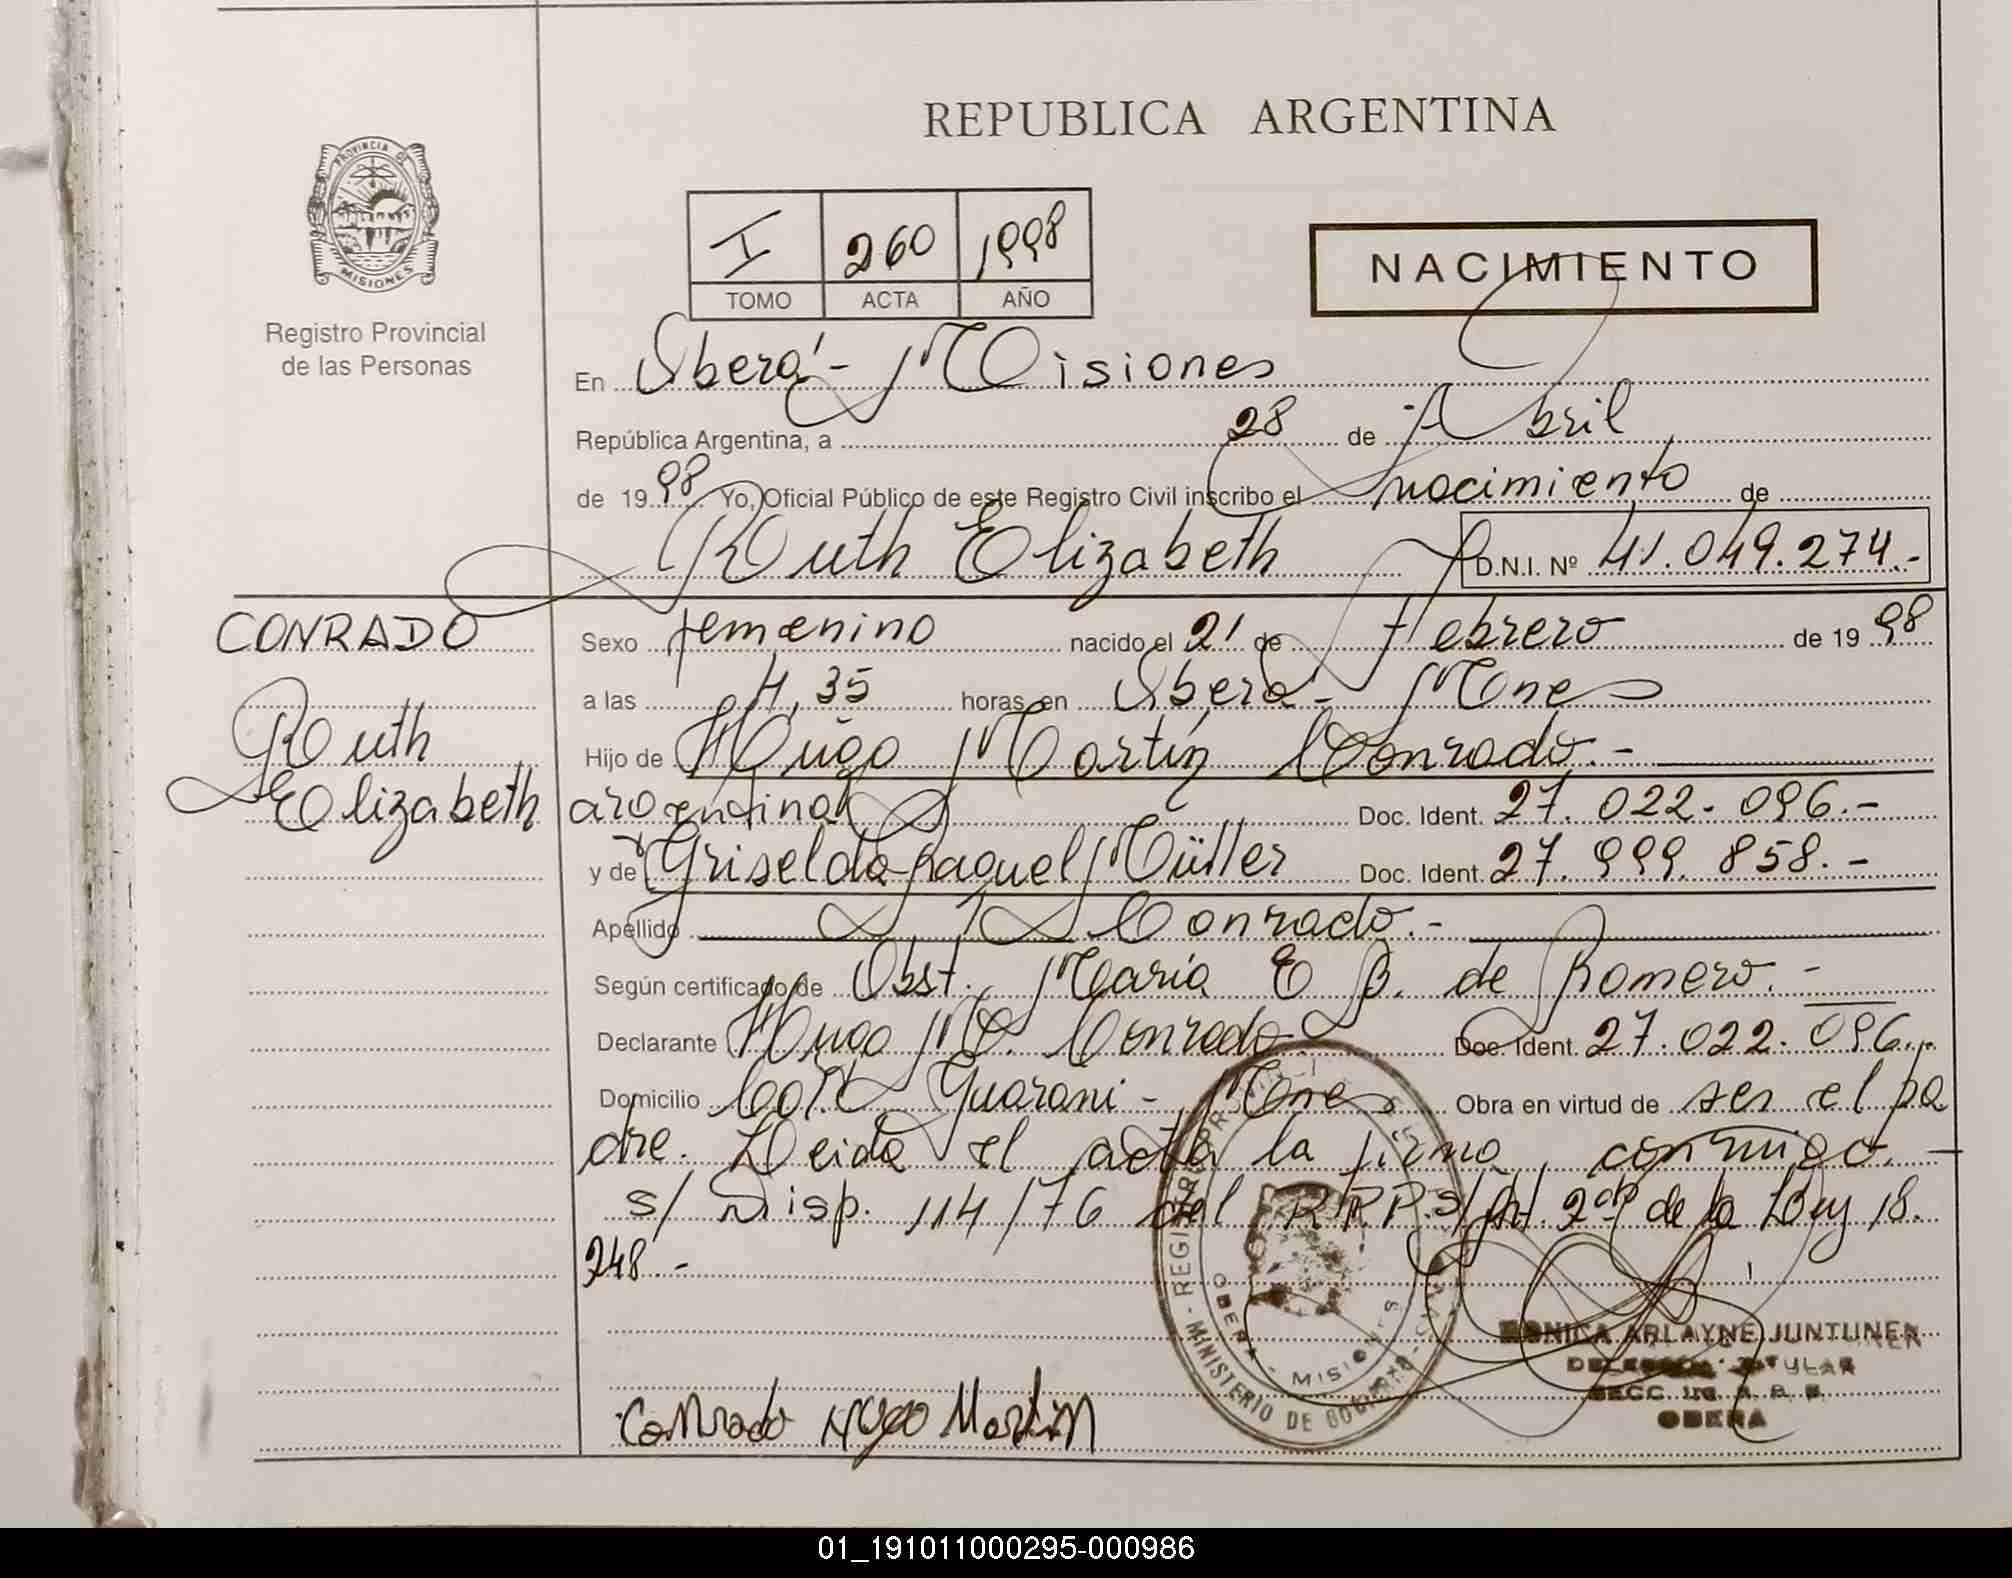 REPUBLICA ARGENTINA
PROVINCIA DE
MISIONES
Registro Provincial
de las Personas
I 260 1998
TOMO ACTA AÑO
NACIMIENTO
En Oberá - Misiones
República Argentina, a 28 de Abril
de 1998 Yo, Oficial Público de este Registro Civil inscribo el nacimiento de
Ruth Elizabeth D.N.I. Nº 41.049.274.-
CONRADO
Ruth
Elizabeth
Sexo femenino nacido el 21 de Febrero de 1998
a las 4,35 horas en Oberá - Mnes
Hijo de Hugo Martín Conrado.-
argentina Doc. Ident. 27.022.096.-
y de Griselda Raquel Müller Doc. Ident. 27.999.858.-
Apellido Conrado.-
Según certificado de Obst. María E B. de Romero.-
Declarante Hugo M. Conrado Doc. Ident. 27.022.096.-
Domicilio Col. Guaraní - Mnes Obra en virtud de ser el pa
dre. Leida el acta la firma conmigo.-
s/ Disp. 114/76 del R.P.P. s/ Art. 2do de la Ley 18.
248.-
MINISTERIO DE GOBIERNO
OBERA - MISIONES
MONICA ARLAYNE JUNTUNEN
TITULAR
OBERA
Conrado Hugo Martin
01_191011000295-000986